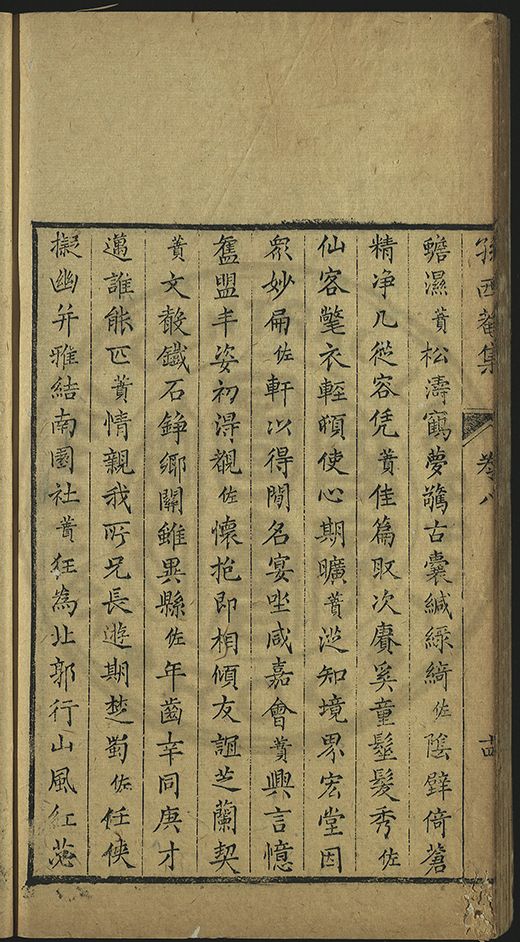 孫西菴集 卷八 十四
蟾濕蕡松濤鶴夢驚古囊緘綠綺佐陰壁倚蒼
精淨几從容凭蕡佳篇取次賡奚童鬟髮秀佐
仙客氅衣輕頓使心期曠蕡從知境界宏堂因
衆妙扁佐軒以得閒名宴坐咸嘉會蕡興言憶
舊盟丰姿初淂覩佐懷抱即相傾友誼芝蘭契
蕡文殽鐵石錚鄉關雖異縣佐年齒幸同庚才
邁誰能匹蕡情親我所兄長遊期楚蜀佐任俠
擬幽并雅結南園社蕡狂為北郭行山風紅